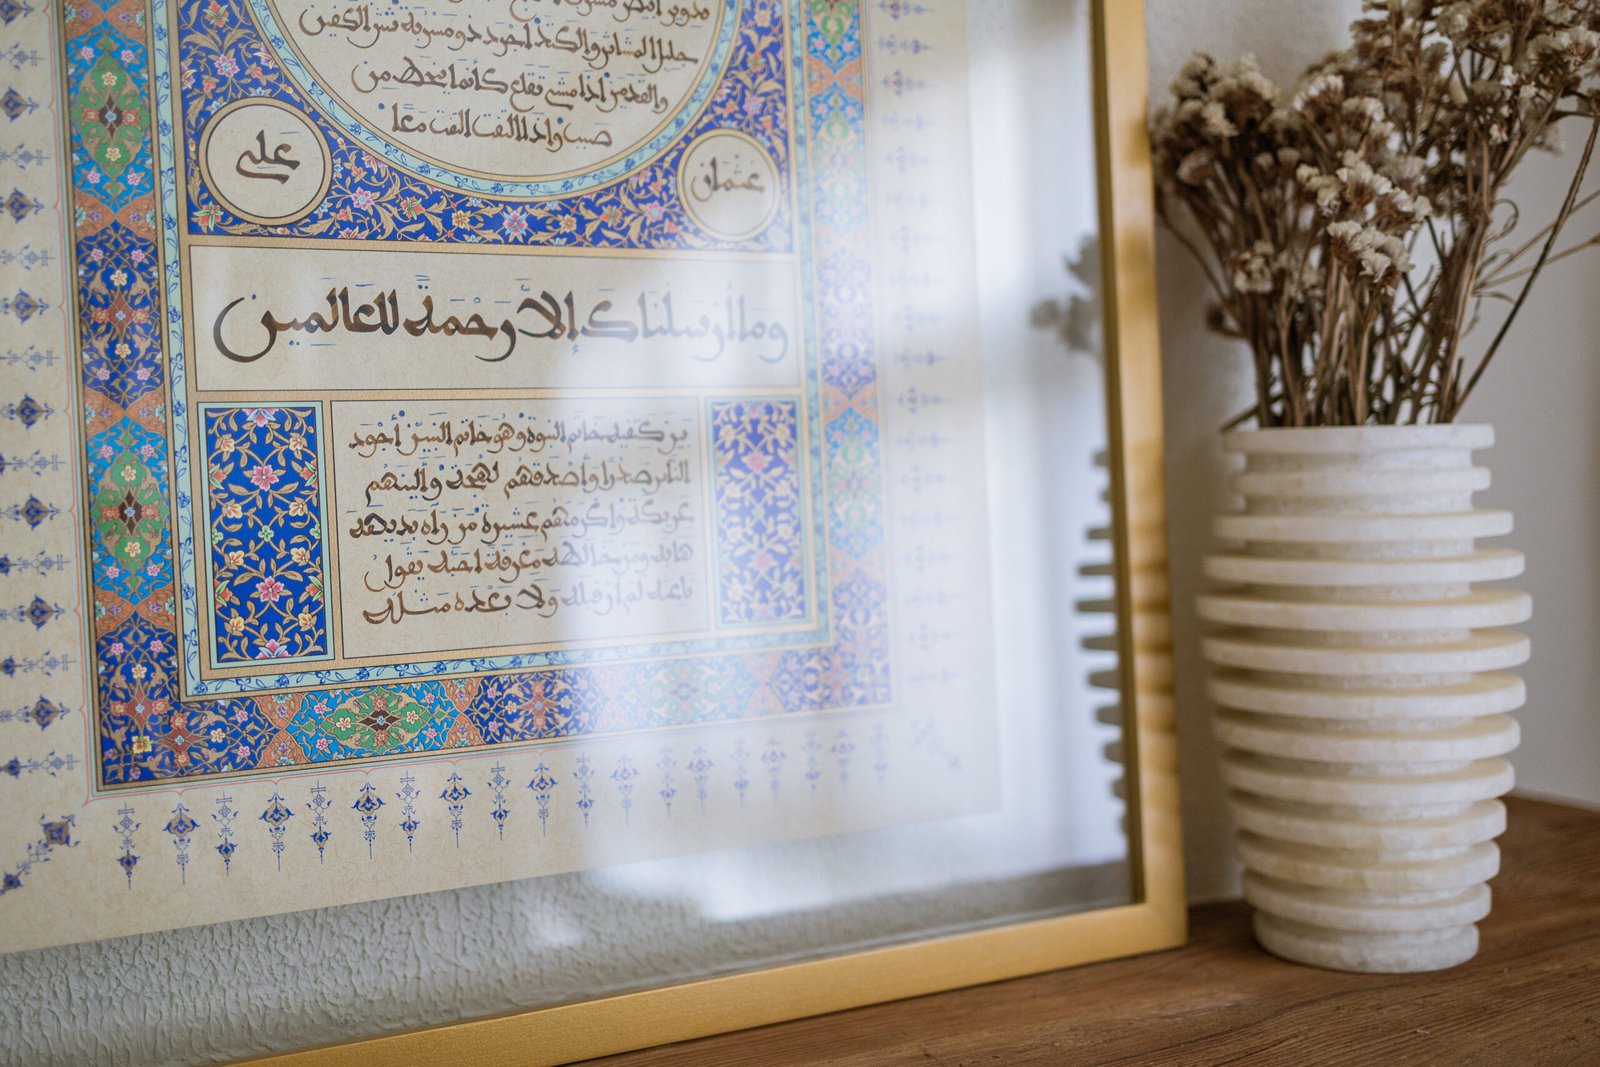 أبيض مشرب
جليل المشاش والكتد أجرد ذو مسربة شثن الكفين
والقدمين إذا مشى تقلع كأنما ينحط من
صبب وإذا التفت التفت معًا
عثمان
علي
وَمَا أَرْسَلْنَاكَ إِلَّا رَحْمَةً لِلْعَالَمِينَ
بين كتفيه خاتم النبوة وهو خاتم النبيين أجود
الناس صدرا وأصدقهم لهجة وألينهم
عريكة وأكرمهم عشيرة من رآه بديهة
هابه ومن خالطه معرفة أحبه يقول
ناعته لم أر قبله ولا بعده مثله